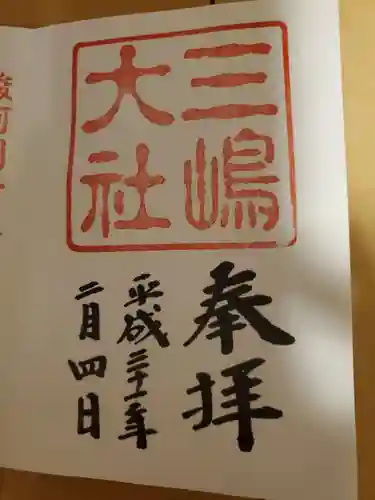 三嶋
大社
奉拝
平成三十一年
二月四日